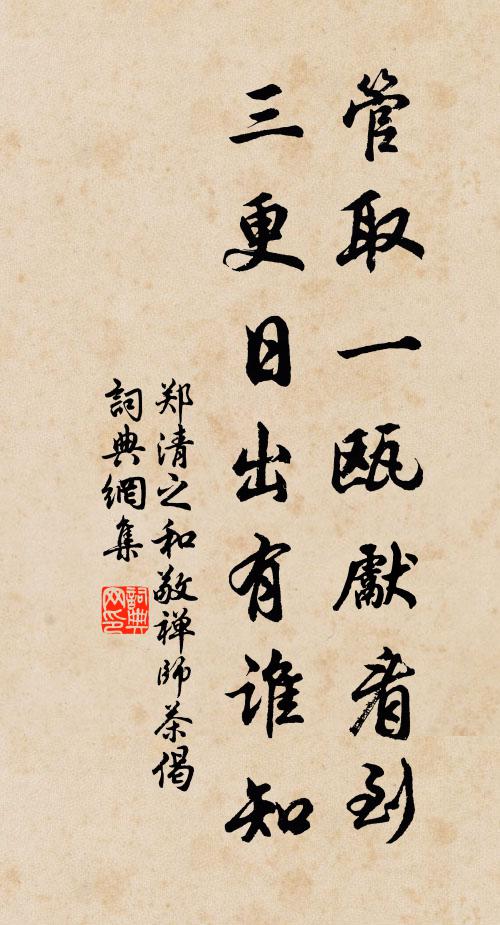 管取一甌獻看到
三更日出有谁知
郑清之和敬禅師茶偈
詞典網集
詞典
网印